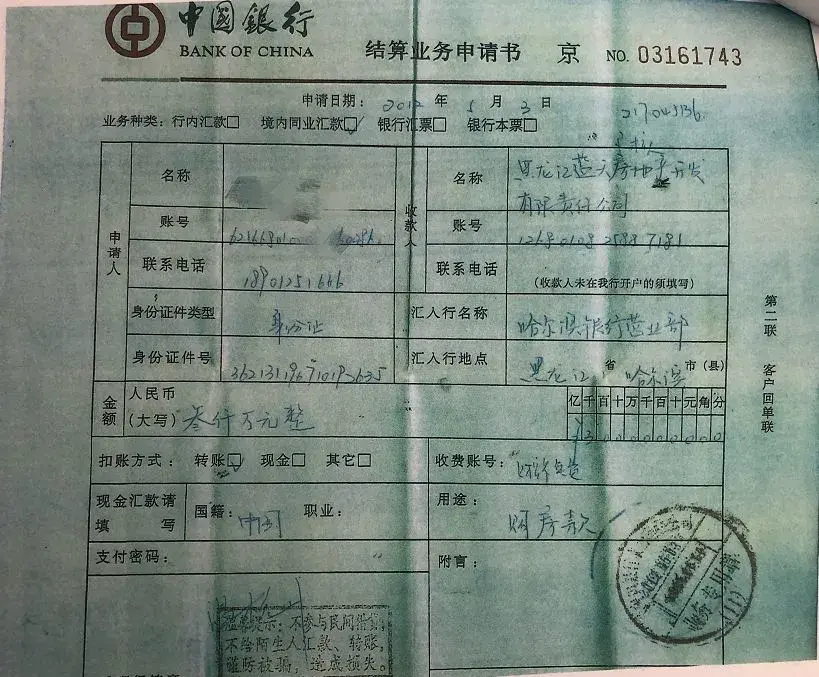 中国银行
BANK OF CHINA
结算业务申请书 京 NO. 03161743
申请日期: 2012 年 5 月 3 日
业务种类: 行内汇款□ 境内同业汇款☑ 银行汇票□ 银行本票□
申请人
名称
账号
联系电话 18901251666
身份证件类型 身份证
身份证件号
收款人
名称 黑龙江蓝天房地产开发
有限责任公司
账号
联系电话
(收款人未在我行开户的须填写)
汇入行名称 哈尔滨银行营业部
汇入行地点 黑龙江 省 哈尔滨 市(县)
金额
人民币
(大写) 叁仟万元整
亿千百十万千百十元角分
¥3000000000
扣账方式: 转账☑ 现金□ 其它□
收费账号:
现金汇款请填写
国籍: 中国 职业:
用途:
购房款
支付密码:
附言:
温馨提示: 不参与民间借贷,
不给陌生人汇款、转账,
谨防被骗, 造成损失。
业务专用章
(11)
第二联 客户回单联